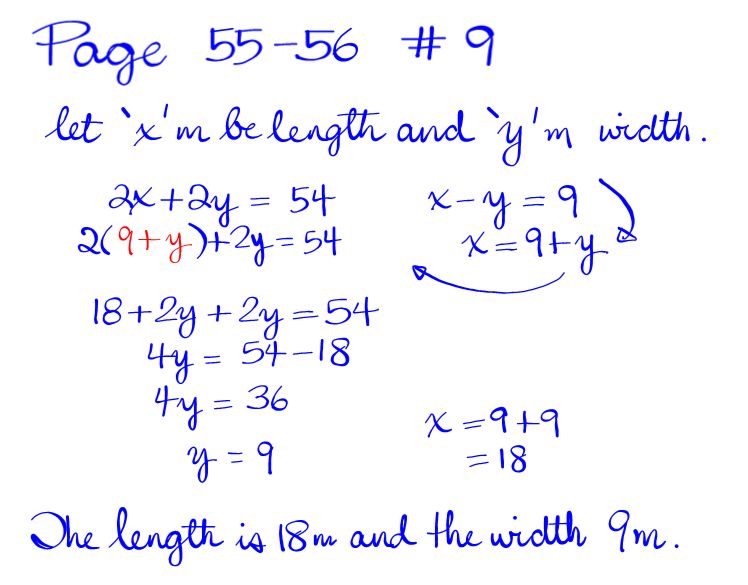 Page 55-56 # 9
let 'x'm be length and 'y'm width.
2x+2y = 54
x-y = 9
2(9+y)+2y = 54
x = 9+y
18+2y+2y = 54
4y = 54-18
4y = 36
x = 9+9
y = 9
= 18
The length is 18m and the width 9m.